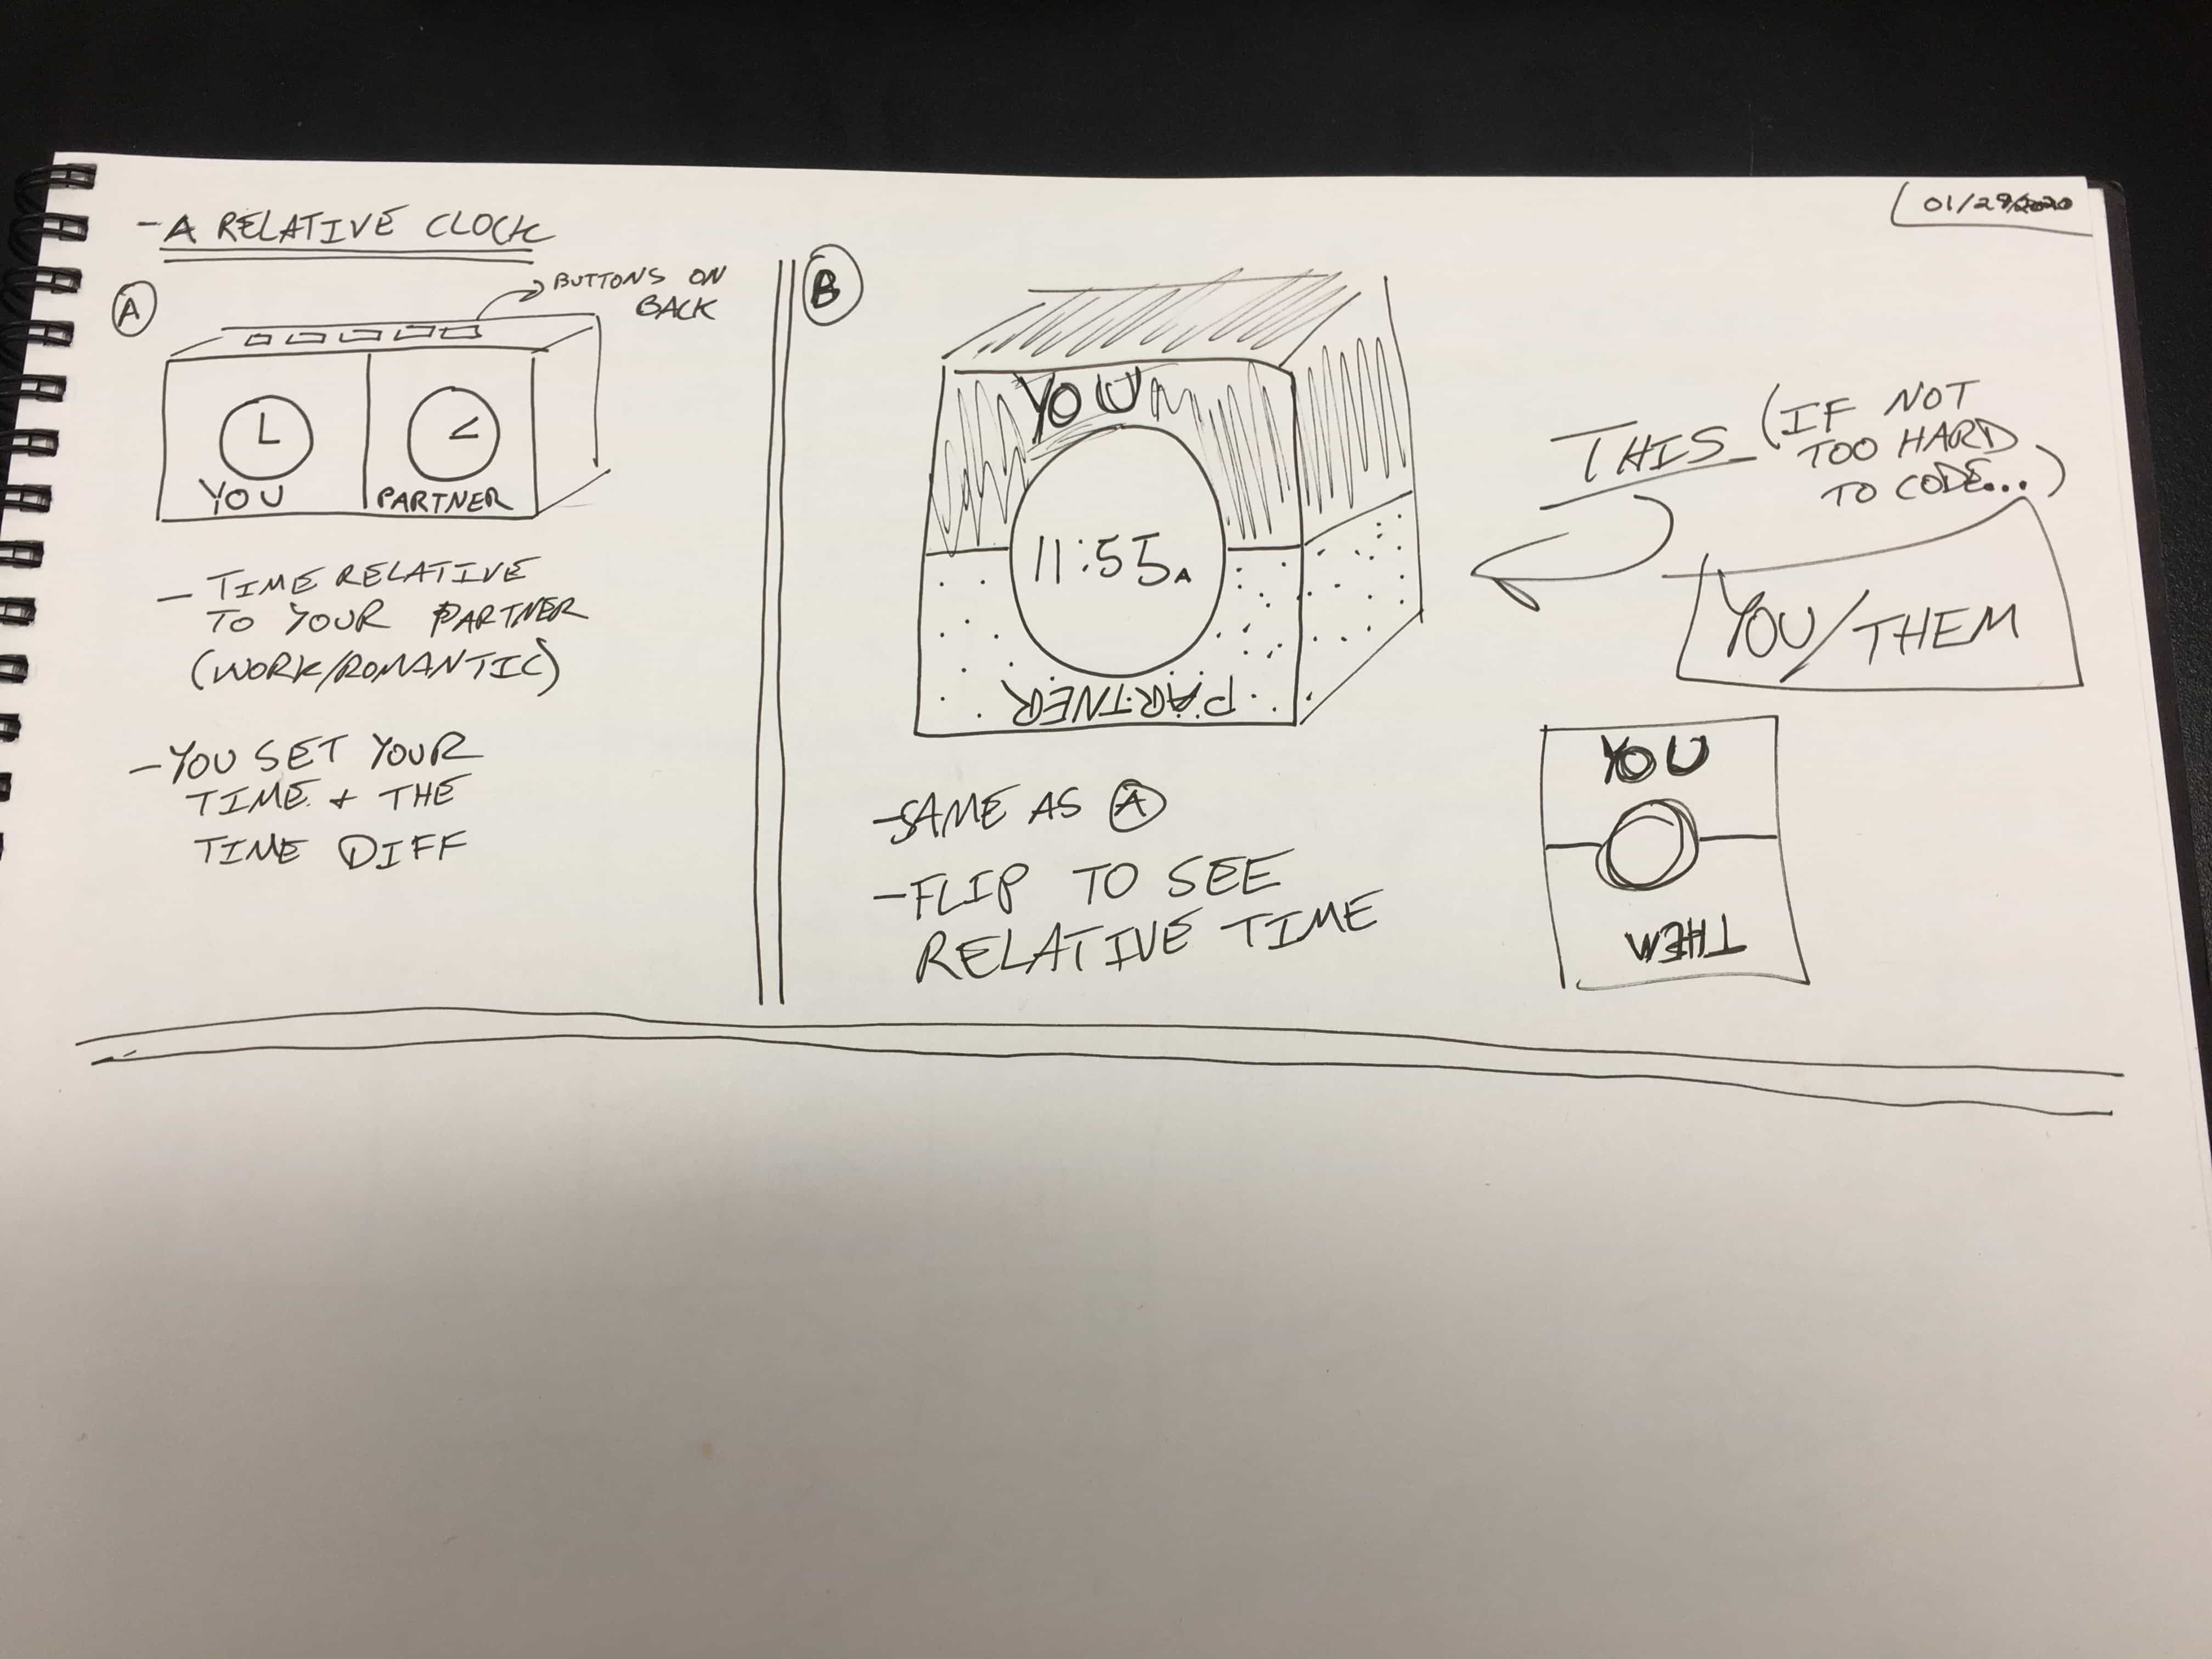 01/29/2020
- A RELATIVE CLOCK
A
BUTTONS ON
BACK
YOU
PARTNER
- TIME RELATIVE
TO YOUR PARTNER
(WORK/ROMANTIC)
- YOU SET YOUR
TIME + THE
TIME DIFF
B
YOU
11:55A
PARTNER
- SAME AS A
- FLIP TO SEE
RELATIVE TIME
THIS (IF NOT
TOO HARD
TO CODE...)
YOU/THEM
YOU
THEM